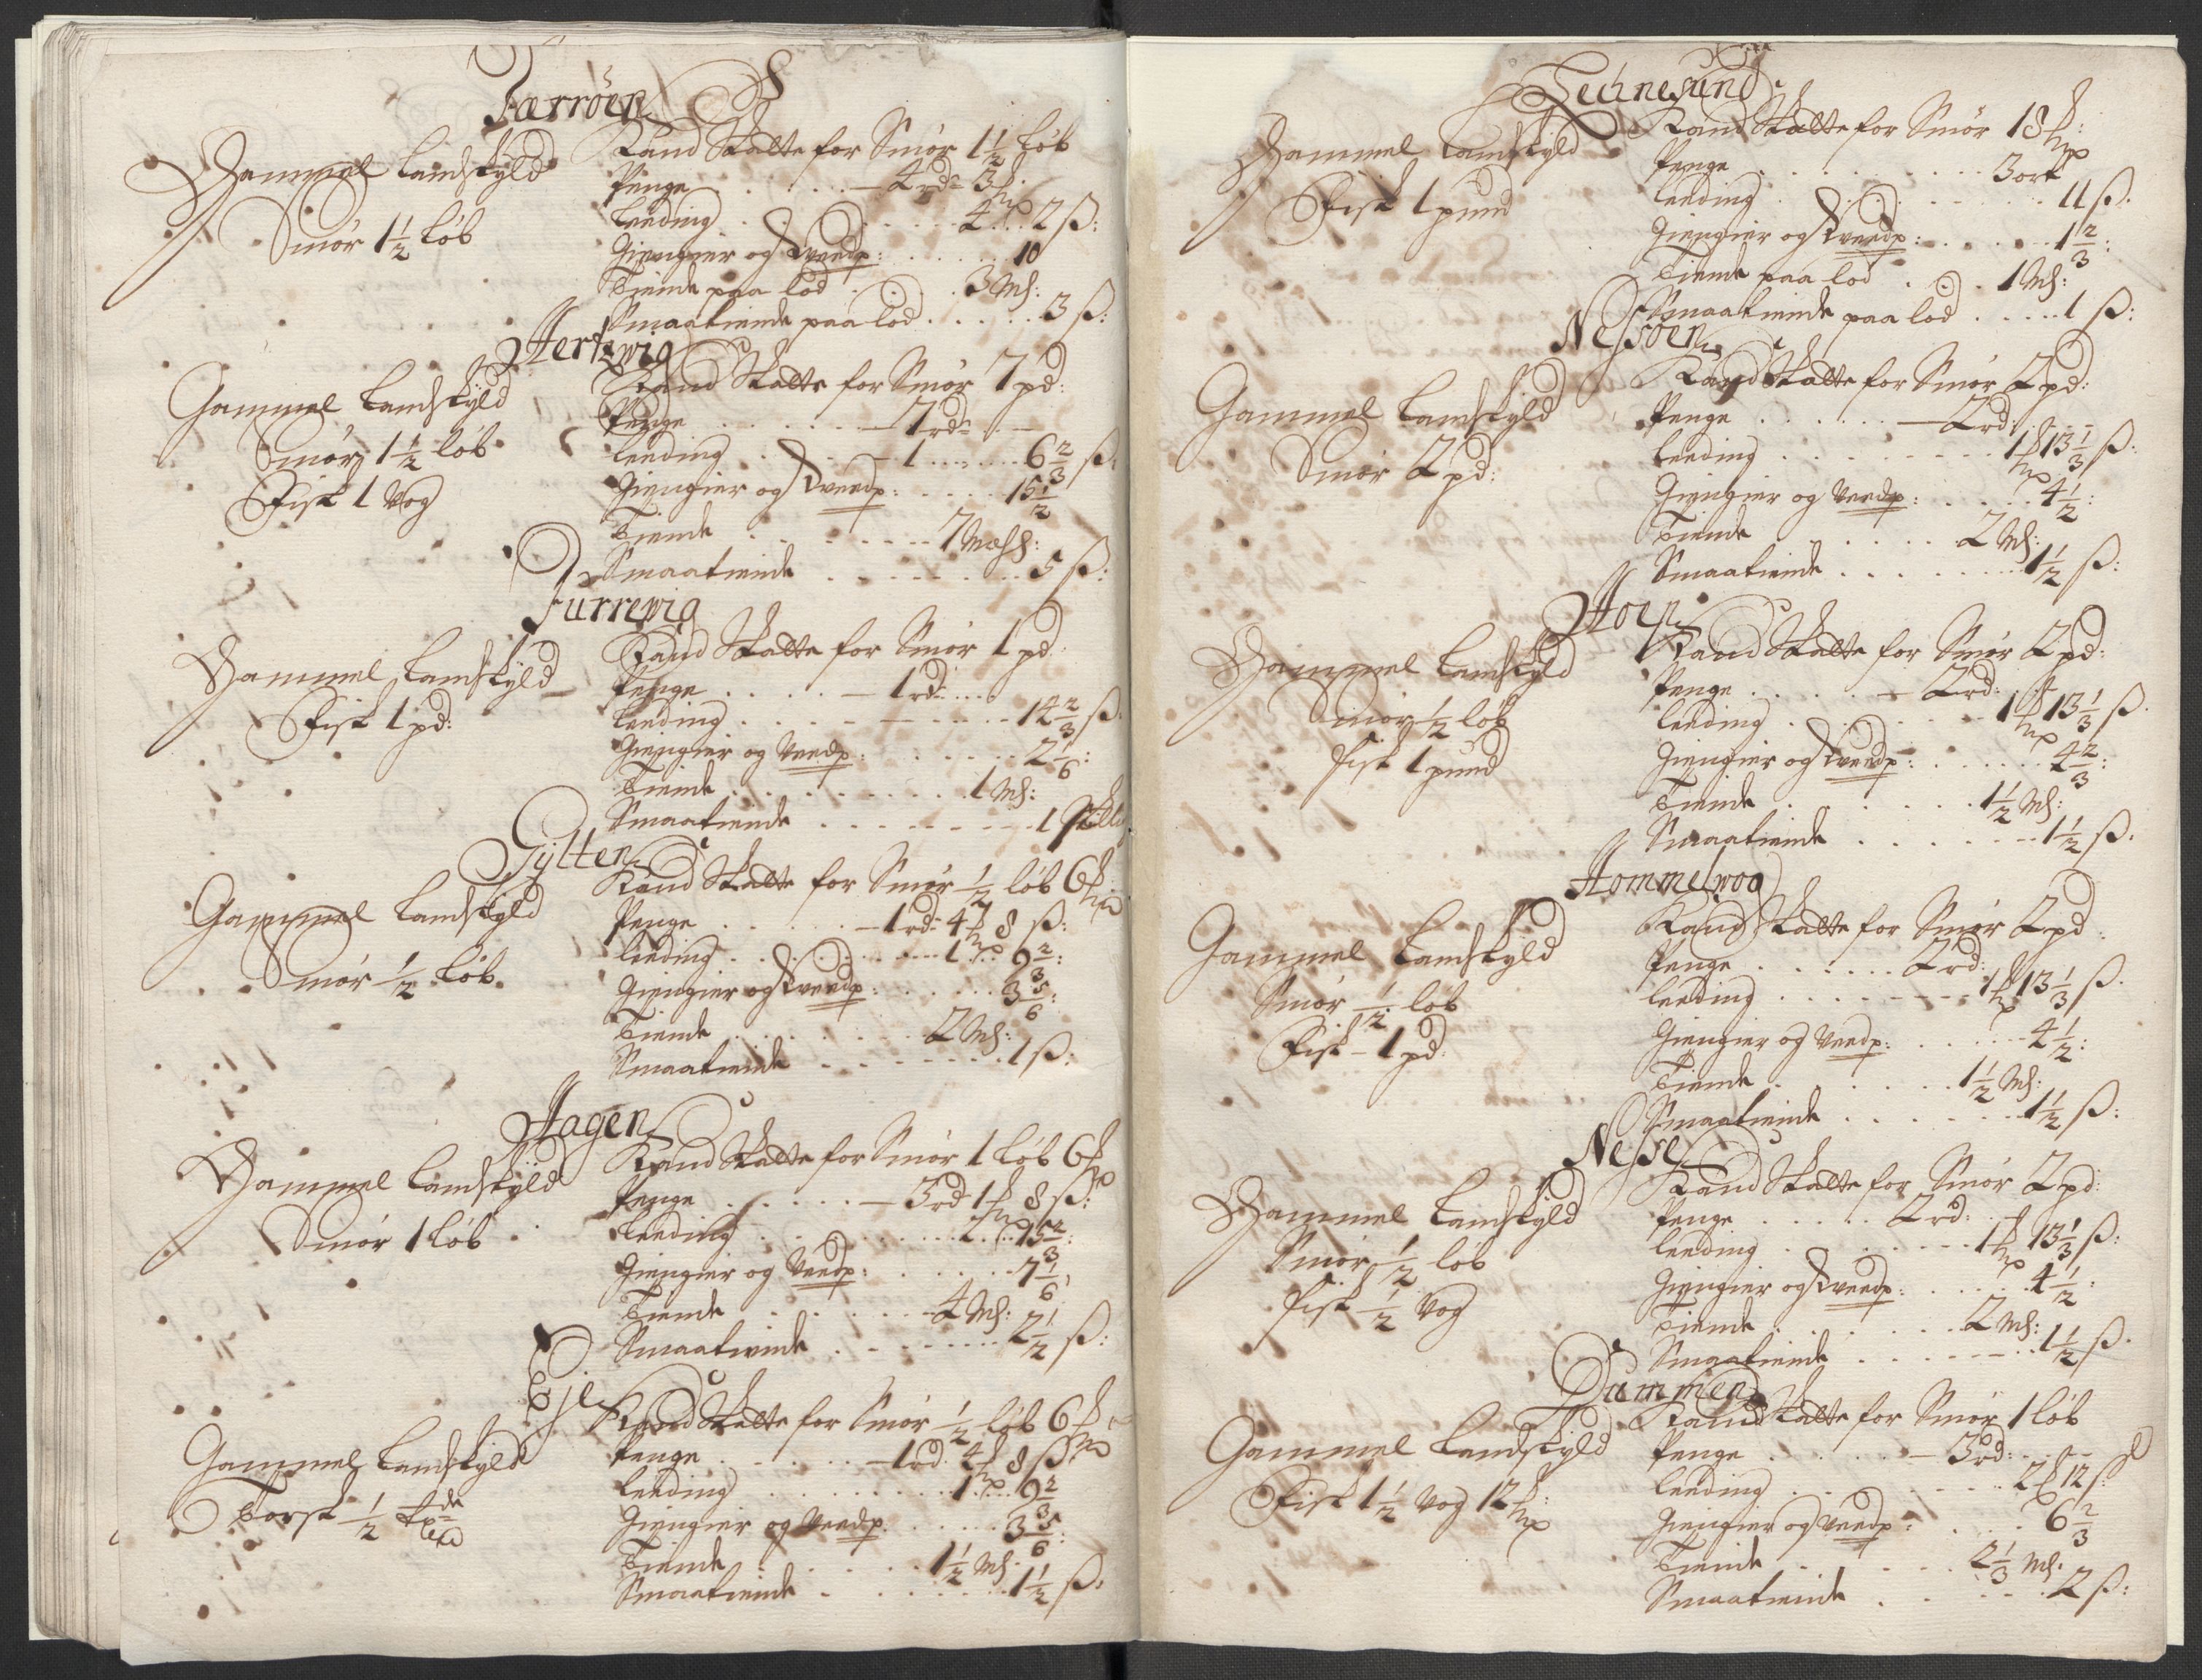 Færröen
Gammel Landskÿld
Smör 1 1/2 Löb
Kand Skatte for Smör 1 1/2 Löb
Penge . . . . . 4 rd 3
Leeding . . . . . 4 . . 2 ß:
Giengier og Vverdp: . . . . . 10
Tiende paa lod . . . 3 Ms:
Smaatiende paa lod . . . . . 3 ß:
Hertzwig
Gammel Landskÿld
Smör 1 1/2 löb
Fisk 1 Vog
Kand Skatte for Smör 7 pd:
Penge . . . . . 7 rd
Leeding . . . . . 1 . . . . 6 2/3 ß:
Giengier og Vverdp: . . . . 15 1/2
Tiende . . . . . 7 Mels:
Smaatiende . . . . . 5 ß:
Furrewig
Gammel Landskÿld
Fisk 1 pd:
Kand Skatte for Smör 1 pd
Penge . . . . 1 rd
Leeding . . . . . 14 2/3 ß:
Giengier og Veedp: . . . . . 2 1/6:
Tiende . . . . . 1 Ms:
Smaatiende . . . . . 1
Gÿlten
Gammel Landskÿld
Smör 1/2 Löb
Kand Skatte for Smör 1/2 löb 6
Penge . . . . . 1 rd 4 8 ß:
Leeding . . . . . 1 . . 9 2/3:
Giengier og Vverdp: . . . . . 3 5/6:
Tiende . . . . . 2 Ms:
Smaatiende . . . . . 1 ß:
Hagen
Gammel Landskÿld
Smör 1 Löb
Kand Skatte for Smör 1 Löb 6
Penge . . . . . 3 rd 1 8 ß:
Leeding . . . . . 2 . . 15 2/3:
Giengier og Veedp: . . . . . 7 1/6
Tiende . . . . . 4 Ms:
Smaatiende . . . . . 2 1/2 ß:
Gammel Landskÿld
Torsk 1/2
Kand Skatte for Smör 1/2 Löb 6
Penge . . . . . 1 rd 4 8 ß:
Leeding . . . . . 1 . . 9 2/3
Giengier og Veedp. . . . . . 3 5/6:
Tiende . . . . . 1 1/2 Ms:
Smaatiende . . . . . 1 1/2 ß:
Technesund
Gammel Landskÿld
Fisk 1 pund
Kand Skatte for Smör 18
Penge . . . . . 3 ort
Leeding . . . . . 11 ß.
Giengier og Vverdp: . . . . . 1 2/3:
Tiende paa lod . . . 1 Ms:
Smaatiende paa lod . . . . 1 ß:
Nessöen
Gammel Landskÿld
Smör 2 pd:
Kand Skatte for Smör 2 pd:
Penge . . . . . 2 rd:
Leeding . . . . . 1 13 1/3 ß:
Giengier og Veedp: . . . . . 4 1/2:
Tiende . . . . . 2 Ms:
Smaatiende . . . . . 1 1/2 ß:
Hoen
Gammel Landskÿld
Smör 1/2 löb
fisk 1 pund
Kand Skatte for Smör 2 pd:
Penge . . . . . 2 rd:
Leeding . . . . . 1 13 1/3 ß.
Giengier og Vverdp: . . . . . 4 2/3:
Tiende . . . . . 1 1/2 Ms:
Smaatiende . . . . . 1 1/2 ß.
Hommelwog
Gammel Landskÿld
Smör 1/2 löb
Fisk 1 pd:
Kand Skatte for Smör 2 pd
Penge . . . . . 2 rd:
Leeding . . . . . 1 13 1/3 ß.
Giengier og Veedp: . . . . . 4 1/2:
Tiende . . . . . 1 1/2 Ms:
Smaatiende . . . . . 1 1/2 ß:
Nesse
Gammel Landskÿld
Smör 1/2 löb
fisk 1/2 Vog
Kand Skatte for Smör 2 pd:
Penge . . . . . 2 rd:
Leeding . . . . . 1 13 1/3 ß:
Giengier og Vverdp: . . . . . 4 1/2:
Tiende . . . . . 2 Ms:
Smaatiende . . . . . 1 1/2 ß.
Dummen
Gammel Landskÿld
Fisk 1 1/2 Vog 12
Kand Skatte for Smör 1 löb
Penge . . . . . 3 rd:
Leeding . . . . . 2 12 ß
Giengier og Veedp: . . . . 6 2/3
Tiende . . . . . 2 1/3 Ms.
Smaatiende . . . . . 2 ß: